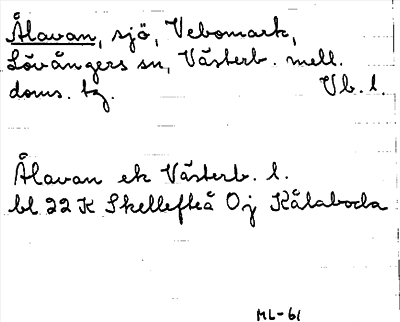 Ålavan, sjö, Vebomark,
Lövångers sn, Västerb. mell.
doms. tg. Vb. l.
Ålavan ek Västerb. l.
bl 22 K Skellefteå Oj Kålaboda
ML-61